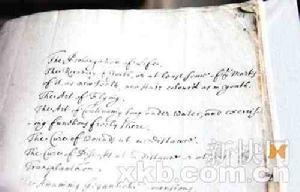 The Prolongation of Life.
The Recovery of Youth, or at least some of the Marks
of it as new Teeth, new Hair colour'd as in youth.
The Art of Flying.
The Art of Continuing long under Water, and exercising
functions freely there.
The Cure of Wounds at a Distance.
The Cure of Diseases at a Distance or at
Transplantation
Attaining Gigantick Dimensions
新快网
xkb.com.cn